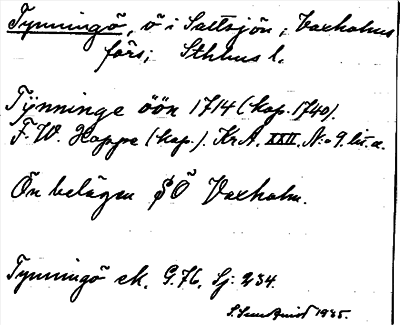 Tynningö, ö i Saltsjön, Vaxholms
förs; Sthlms l.
Tÿnninge öön 1714 (kop. 1740).
F. W. Hoppe (kop.). KrA. XXII. N:o 9. lit. a.
Ön belägen SÖ Vaxholm.
Tynningö ek. G. 76. Sj: 234.
1935.